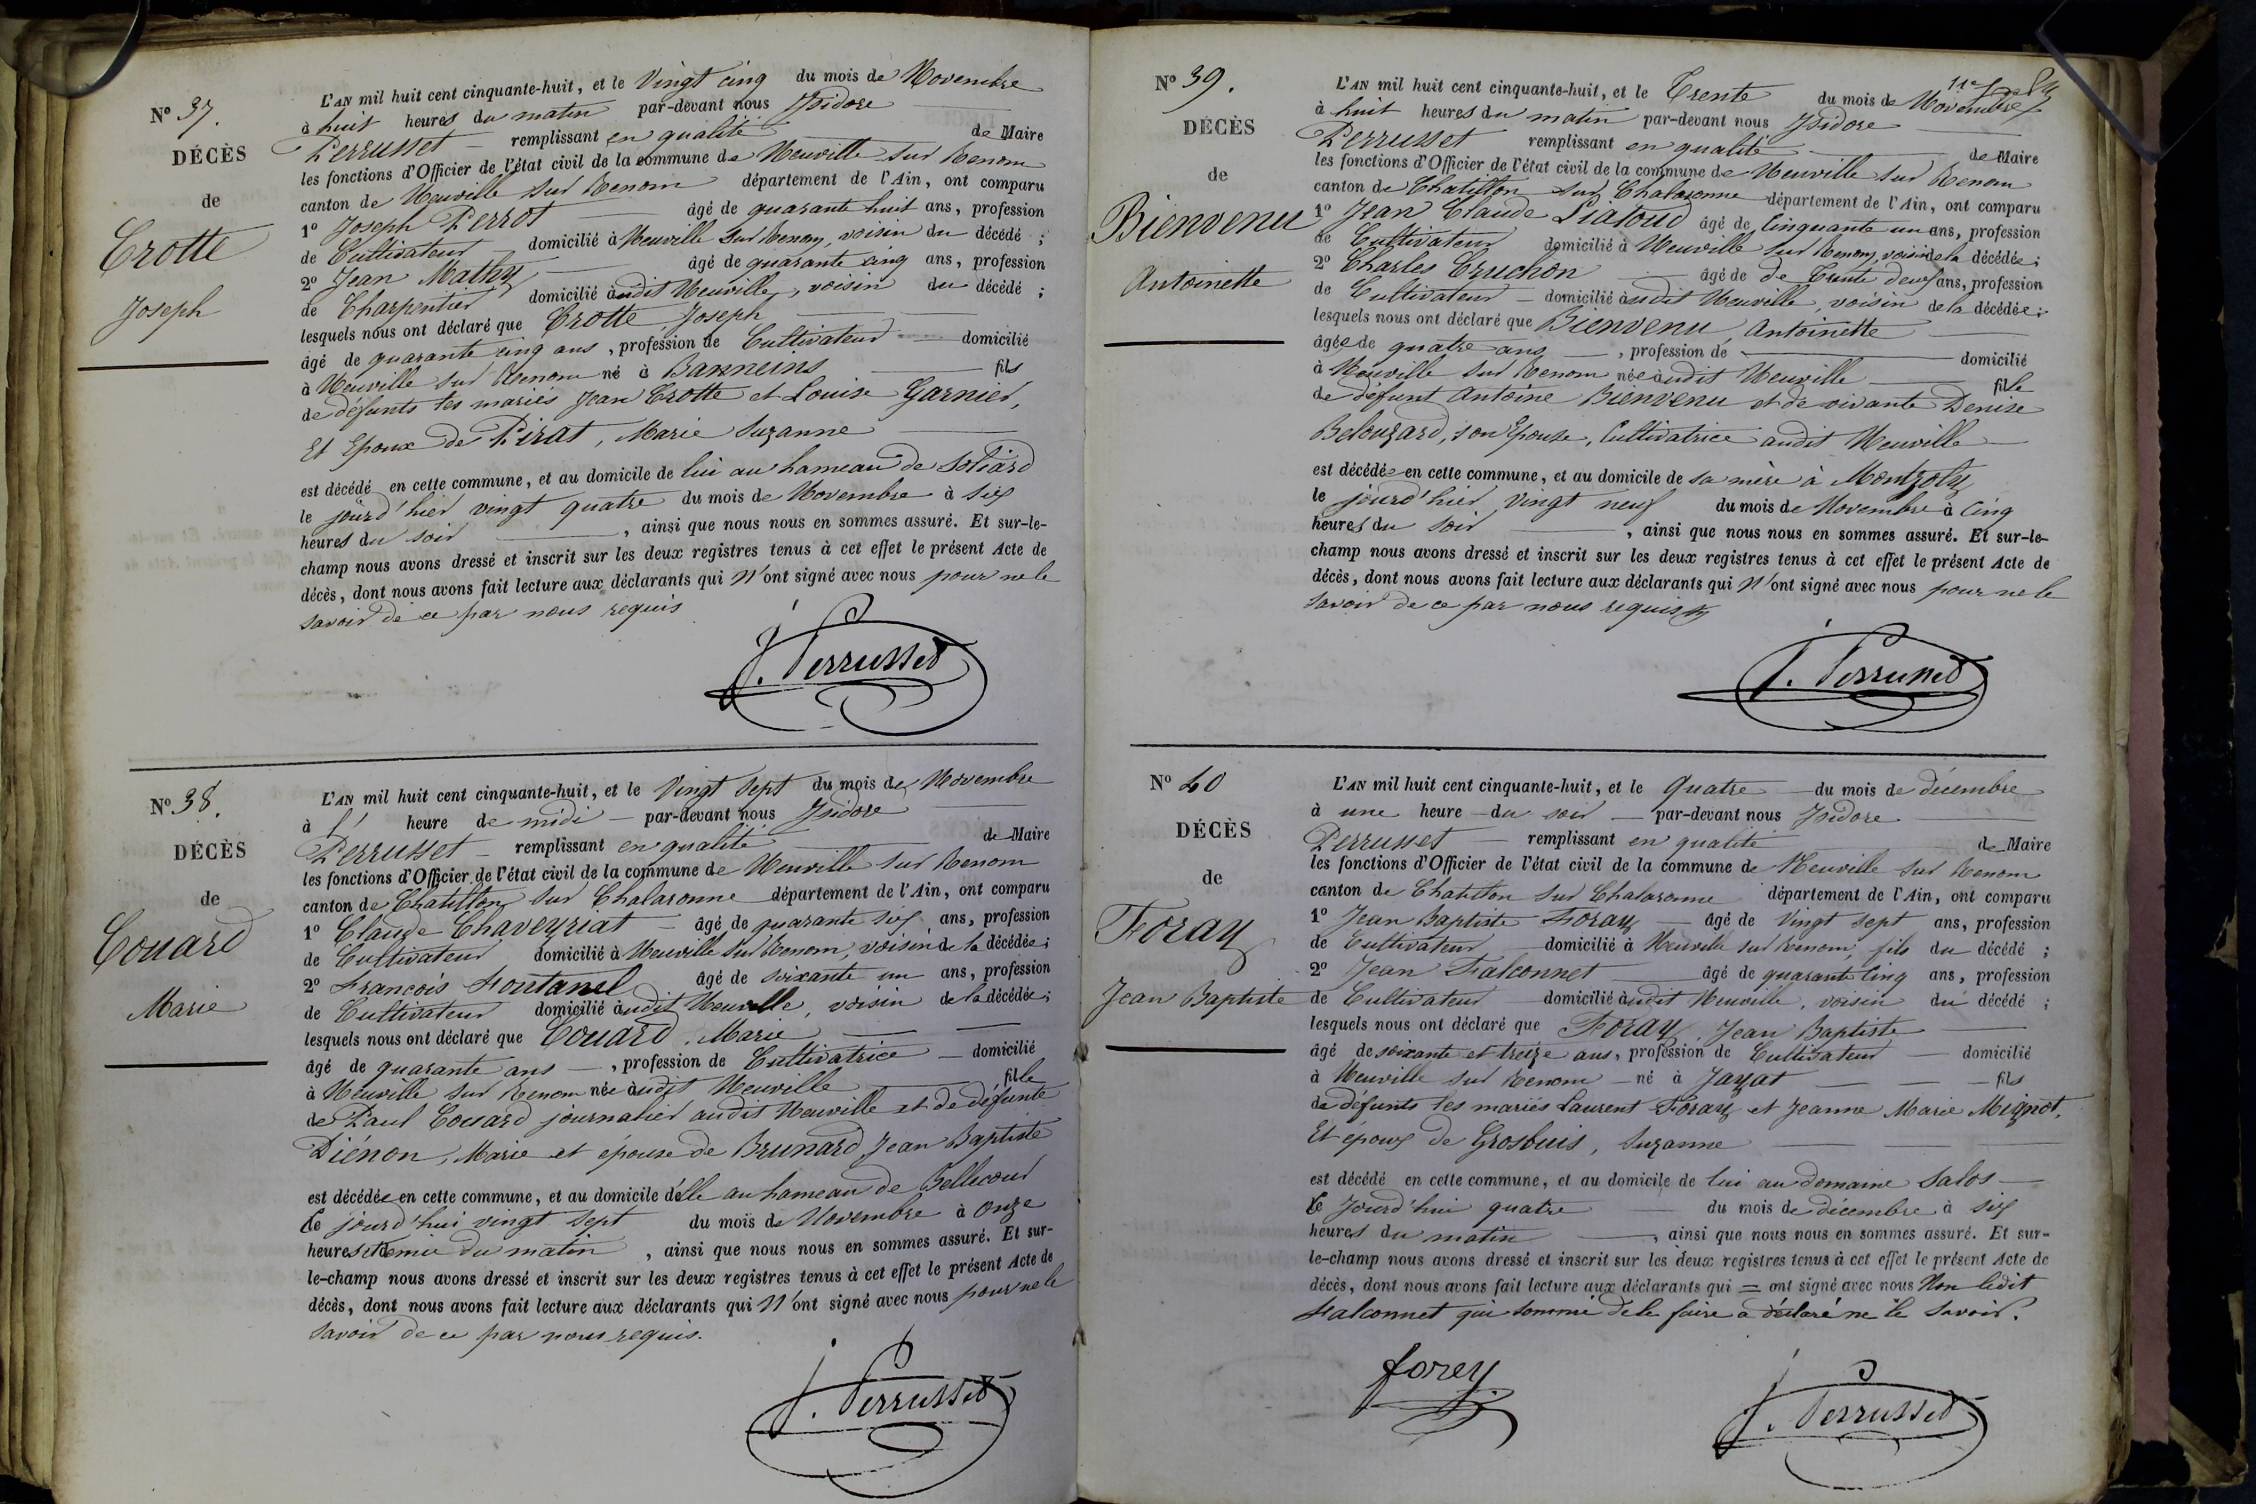 N° 37.
DÉCÈS
de
Crotte
Joseph
L'AN mil huit cent cinquante-huit, et le Vingt cinq du mois de Novembre
à huit heures du matin par-devant nous Isidore
Perrusset remplissant en qualité de Maire
les fonctions d'Officier de l'état civil de la commune de Neuville sur Renom
canton de Neuville sur Renom département de l'Ain, ont comparu
1° Joseph Perrot âgé de quarante huit ans, profession
de Cultivateur domicilié à Neuville sur Renom, voisin du décédé ;
2° Jean Mathy âgé de quarante cinq ans, profession
de Charpentier domicilié audit Neuville, voisin du décédé ;
lesquels nous ont déclaré que Crotte Joseph
âgé de quarante cinq ans, profession de Cultivateur domicilié
à Neuville sur Renom né à Banneins fils
de défunts les mariés Jean Crotte et Louise Garnier,
Et Epoux de Pirat, Marie Suzanne
est décédé en cette commune, et au domicile de lui au hameau de
le jourd'hier vingt quatre du mois de Novembre à six
heures du soir, ainsi que nous nous en sommes assuré. Et sur-le-
champ nous avons dressé et inscrit sur les deux registres tenus à cet effet le présent Acte de
décès, dont nous avons fait lecture aux déclarants qui n'ont signé avec nous pour ne le
savoir de ce par nous requis
J. Perrusset
N° 38.
DÉCÈS
de
Couard
Marie
L'AN mil huit cent cinquante-huit, et le Vingt sept du mois de Novembre
à l' heure de midi par-devant nous Isidore
Perrusset remplissant en qualité de Maire
les fonctions d'Officier de l'état civil de la commune de Neuville sur Renom
canton de Chatillon sur Chalaronne département de l'Ain, ont comparu
1° Claude Chaveyriat âgé de quarante six ans, profession
de Cultivateur domicilié à Neuville sur Renom, voisin de la décédée ;
2° François Fontanel âgé de soixante un ans, profession
de Cultivateur domicilié audit Neuville, voisin de la décédée ;
lesquels nous ont déclaré que Couard, Marie
âgé de quarante ans, profession de Cultivatrice domicilié
à Neuville sur Renom née audit Neuville, fille
de Paul Couard journalier audit Neuville et de défunte
Diénon, Marie et épouse de Brunard Jean Baptiste
est décédée en cette commune, et au domicile d'elle au hameau de Bellecour
le jourd'hui vingt sept du mois de Novembre à onze
heures et demie du matin, ainsi que nous nous en sommes assuré. Et sur-
le-champ nous avons dressé et inscrit sur les deux registres tenus à cet effet le présent Acte de
décès, dont nous avons fait lecture aux déclarants qui n'ont signé avec nous pour ne le
savoir de ce par nous requis.
J. Perrusset
N° 39.
DÉCÈS
de
Bienvenu
Antoinette
L'AN mil huit cent cinquante-huit, et le Trente du mois de Novembre
à huit heures du matin par-devant nous Isidore
Perrusset remplissant en qualité de Maire
les fonctions d'Officier de l'état civil de la commune de Neuville sur Renom
canton de Chatillon sur Chalaronne département de l'Ain, ont comparu
1° Jean Claude Liatoud âgé de Cinquante un ans, profession
de Cultivateur domicilié à Neuville sur Renom, voisin de la décédée ;
2° Charles Cruchon âgé de de Trente deux ans, profession
de Cultivateur domicilié audit Neuville, voisin de la décédée ;
lesquels nous ont déclaré que Bienvenu, Antoinette
âgée de quatre ans, profession de domicilié
à Neuville sur Renom née audit Neuville fille
de défunt Antoine Bienvenu et de vivante Denise
Belouzard, son Epouse, Cultivatrice audit Neuville
est décédée en cette commune, et au domicile de sa mère à Montzoly
le jourd'hier vingt neuf du mois de Novembre à Cinq
heures du soir, ainsi que nous nous en sommes assuré. Et sur-le-
champ nous avons dressé et inscrit sur les deux registres tenus à cet effet le présent Acte de
décès, dont nous avons fait lecture aux déclarants qui n'ont signé avec nous pour ne le
savoir de ce par nous requis
J. Perrusset
N° 40
DÉCÈS
de
Foray
Jean Baptiste
L'AN mil huit cent cinquante-huit, et le Quatre du mois de décembre
à une heure du soir par-devant nous Isidore
Perrusset remplissant en qualité de Maire
les fonctions d'Officier de l'état civil de la commune de Neuville sur Renom
canton de Chatillon sur Chalaronne département de l'Ain, ont comparu
1° Jean Baptiste Foray âgé de Vingt sept ans, profession
de Cultivateur domicilié à Neuville sur Renom, fils du décédé ;
2° Jean Falconnet âgé de quarante Cinq ans, profession
de Cultivateur domicilié audit Neuville, voisin du décédé ;
lesquels nous ont déclaré que Foray, Jean Baptiste
âgé de soixante et treize ans, profession de Cultivateur domicilié
à Neuville sur Renom né à Jayat fils
de défunts les mariés Laurent Foray et Jeanne Marie Mignot,
Et époux de Grosbuis, Suzanne
est décédé en cette commune, et au domicile de lui au domaine Salos
le Jourd'hui quatre du mois de décembre à six
heures du matin, ainsi que nous nous en sommes assuré. Et sur-
le-champ nous avons dressé et inscrit sur les deux registres tenus à cet effet le présent Acte de
décès, dont nous avons fait lecture aux déclarants qui = ont signé avec nous Non ledit
Falconnet qui sommé de le faire a déclaré ne le savoir.
forey
J. Perrusset